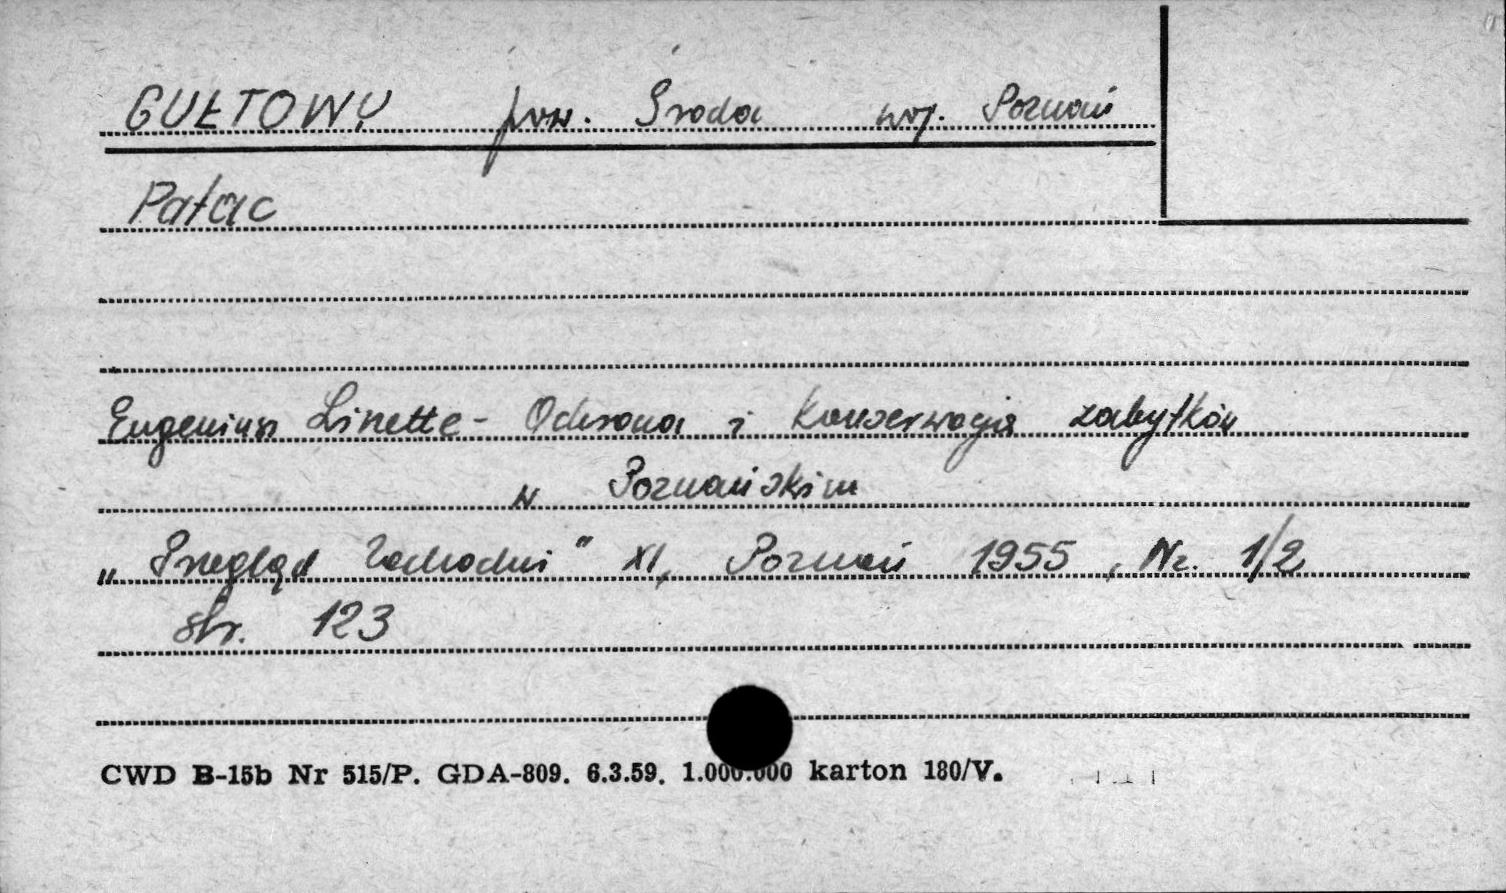 GUŁTOWY pow. Środa woj. Poznań
Pałac
Eugeniusz Linette - Ochrona i konserwacja zabytków
w Poznańskim
„Przegląd Zachodni" XI, Poznań 1955, Nr. 1/2
str. 123
CWD B-15b Nr 515/P. GDA-809. 6.3.59. 1.000.000 karton 180/V.